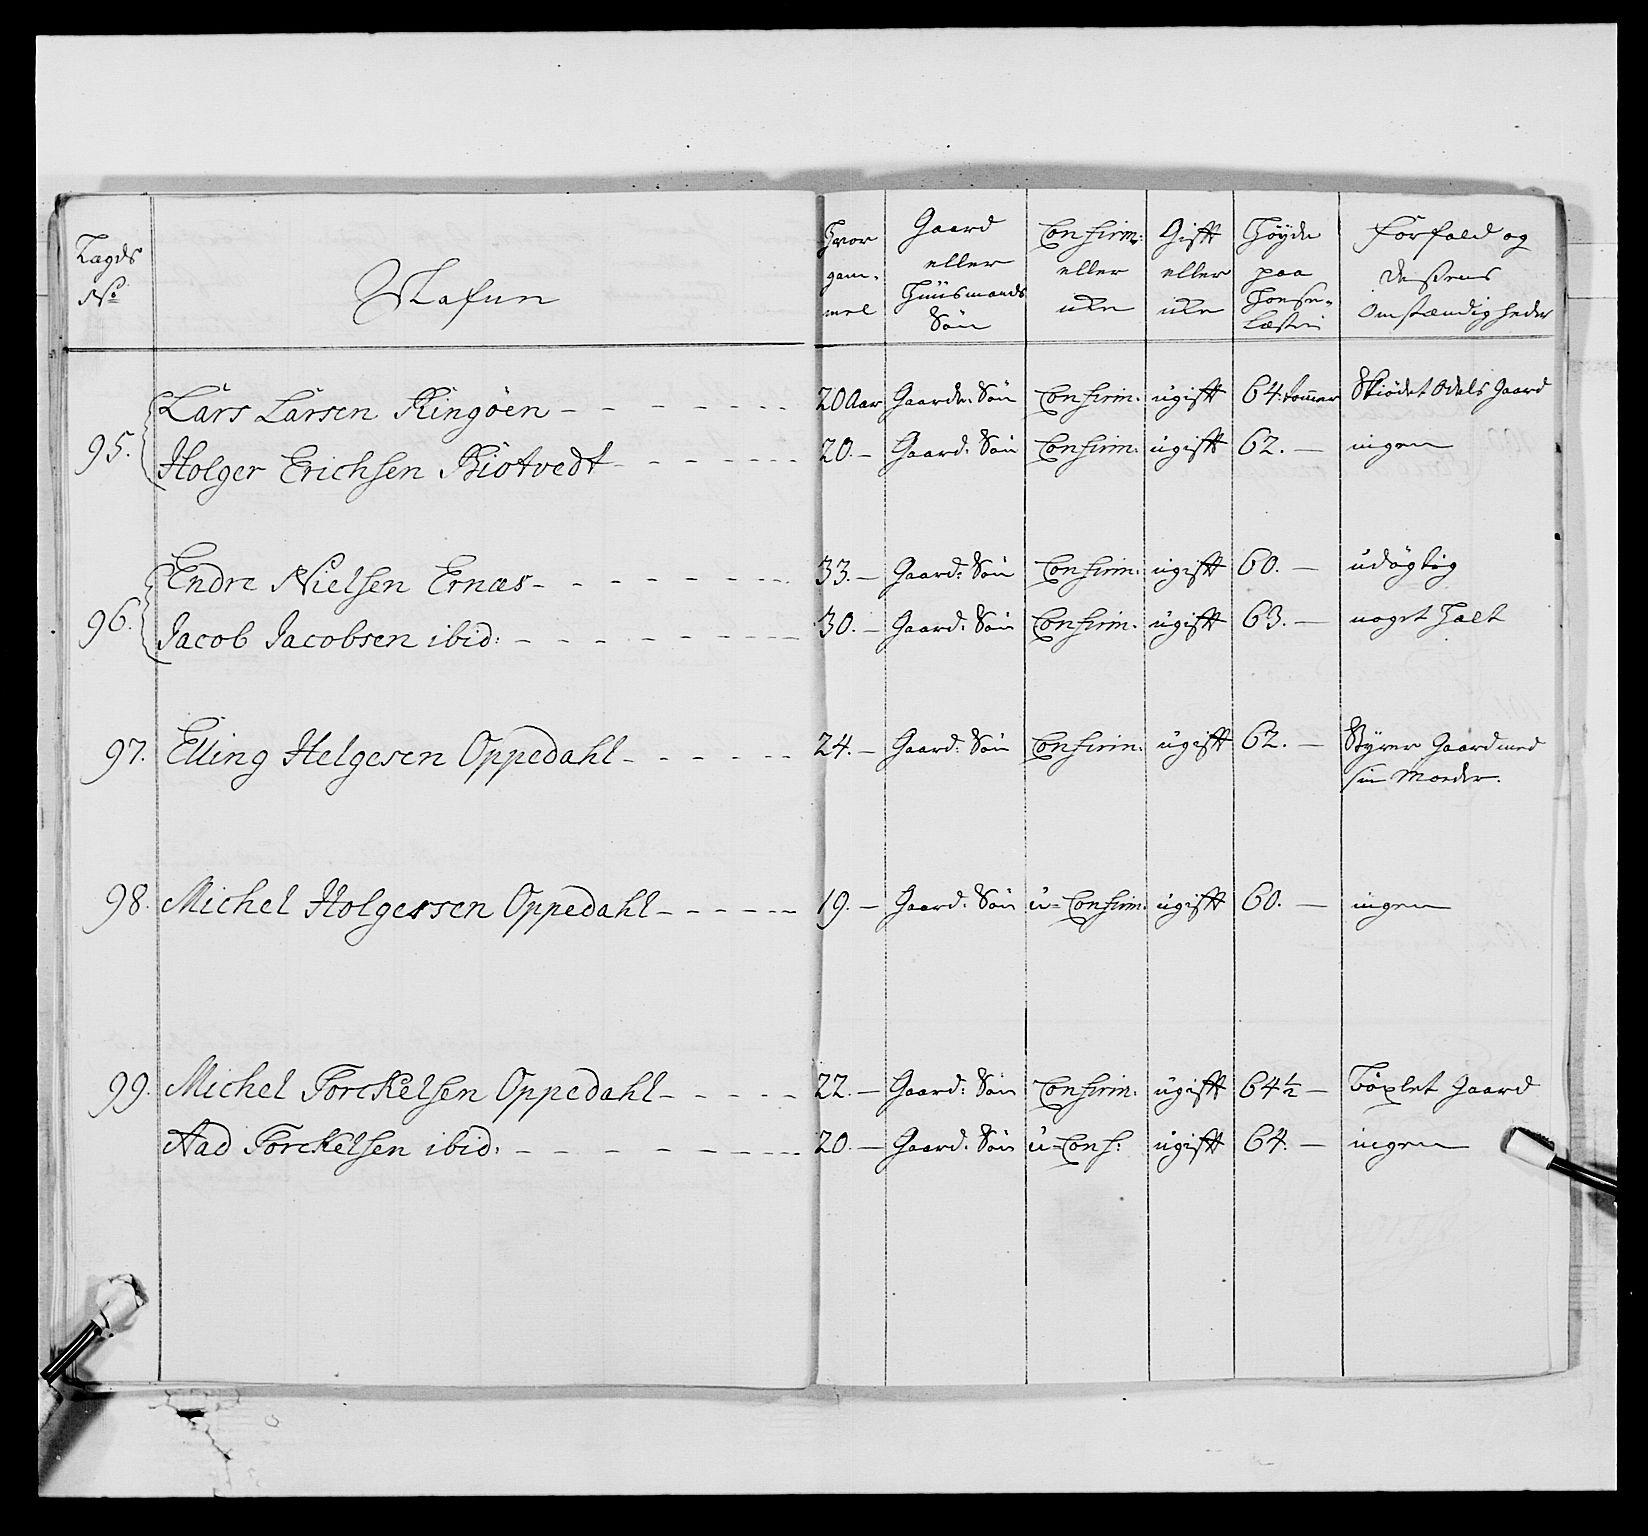 Lagds No | Nafnn | Hvor gam- mel | Gaard eller Huusmands Søn | Confirm: eller icke | Gift eller icke | Høyde paa Hose- Læsten | Forfald og dessens Omstændigheder
95. Lars Larsen Ringøen | 20 Aar | Gaard: Søn | Confirm: | ugift | 64. tommer | Skiødet Odels Gaard
Holger Erichsen Kiotvedt | 20. — | Gaard: Søn | Confirm: | ugift | 62. — | ingen
96. Endre Nielsen Ernæs | 33. — | Gaard: Søn | Confirm: | ugift | 60. — | udøgtig
Jacob Jacobsen ibid: | 30. — | Gaard: Søn | Confirm: | ugift | 63. — | noget Halt
97. Elling Helgesen Oppedahl | 24. — | Gaard: Søn | Confirm: | ugift | 62. — | Styrer Gaard med
sin Moeder.
98. Michel Holgessen Oppedahl | 19. — | Gaard: Søn | u-Confirm: | ugift | 60. — | ingen
99. Michel Torckelsen Oppedahl | 22. — | Gaard: Søn | Confirm: | ugift | 64½ — | Bøxlet Gaard
Aad Torckelsen ibid: | 20. — | Gaard: Søn | u-Conf: | ugift | 64. — | ingen